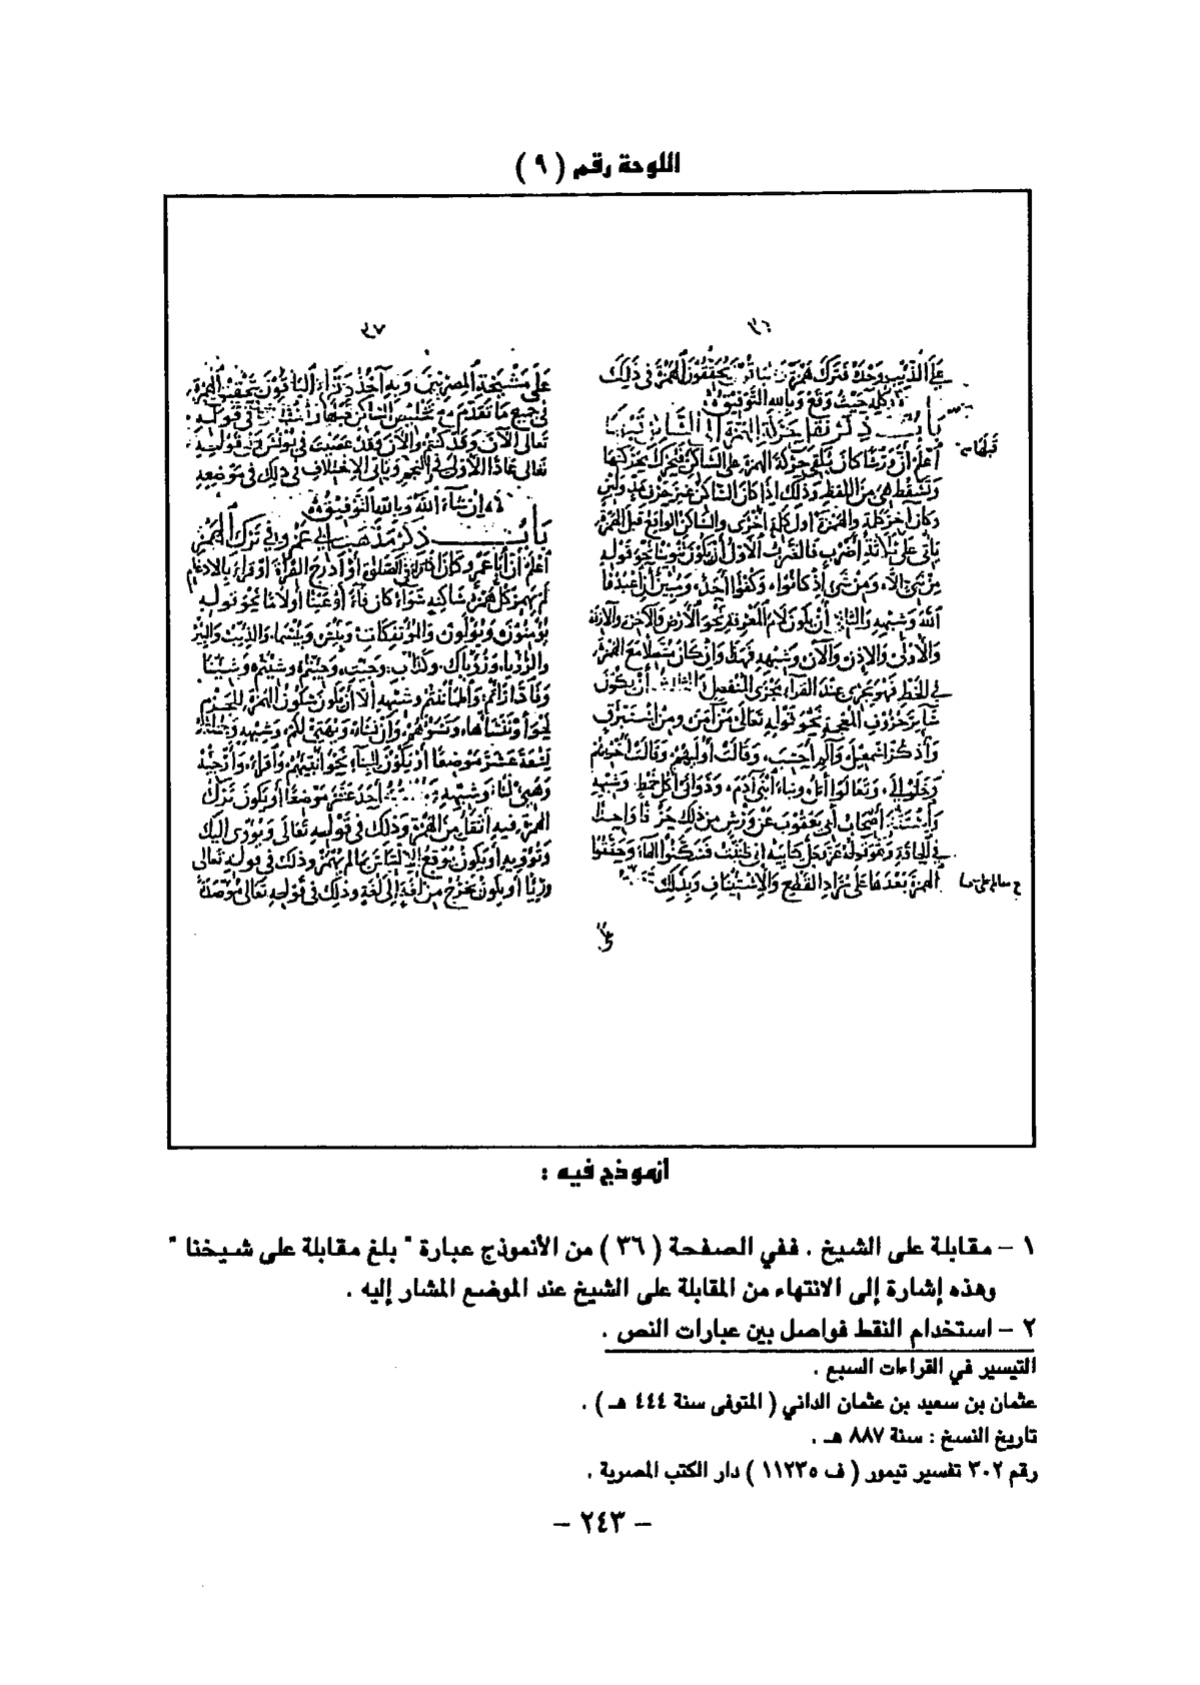 اللوحة رقم ( ٩ )
٣٦
على الذيب وحده فترك همزه يحققون الهمزة في ذلك
كله حيث وقع وبالله التوفيق
باب ذكر نقل حركة الهمزة إلى الساكن قبلها
قبلها
اعلم أن ورشا كان يلقي حركة الهمزة على الساكن فيتحرك بحركتها
وتسقط هي من اللفظ وذلك إذا كان الساكن غير حرف مد ولين
وكان آخر كلمة والهمزة أول كلمة أخرى والساكن الواقع قبل الهمزة
يأتي على ثلاثة أضرب فالضرب الأول أن يكون تنوينا نحو قوله
من شيء إلا ومن شيء إذ كانوا وكفوا أحد ومبين أن اعبدوا
الله وشبهه والثاني أن يكون لام المعرفة نحو الأرض والآخرة والآزفة
والأولى والأذن والآن وشبهه فهذا وإن كان متصلا مع الهمزة
في الخط فهو يجري عند القراء مجرى المنفصل والثالث أن يكون
سائر حروف المعجم نحو قوله تعالى من آمن ومن استبرق
واذكر إسمعيل والم أحسب وقالت أوليهم وقالت أخريهم
وخلوا إلى وتعالوا أتل ونبأ ابني آدم وذواتي أكل خمط وشبهه
واستثنى أصحاب أبي يعقوب عن ورش من ذلك حرفا واحدا
في الحاقة وهو قوله عز وجل كتابيه إني ظننت فسكنوا الهاء وحققوا
الهمزة بعدها على مراد القطع والاستيناف وبذلك
على
٣٧
على مشيخة المصريين وبه آخذ وقرأ الباقون بتحقيق الهمزة
في جميع ما تقدم مع تخليص الساكن قبلها في قوله
تعالى الآن وقد كنتم والآن وقد عصيت في يونس وفي قوله
تعالى عادا الأولى في والنجم ويأتي الاختلاف في ذلك في موضعه
إن شاء الله وبالله التوفيق
باب ذكر مذهب أبي عمرو في ترك الهمزة
اعلم أن أبا عمرو كان إذا قرأ في الصلوة أو أدرج القراءة أو قرأ بالادغام
لم يهمز كل همزة ساكنة سواء كان فاء أو عينا أو لاما نحو قوله
يؤمنون ويؤلون والمؤتفكات وبئس وبئسما والذئب والبئر
والرؤيا ورؤياك وكدأب وجئت وجئتم وشئتم وشئنا
وفادارأتم واطمأننتم وشبهه إلا أن يكون سكون الهمزة للجزم
نحو أو ننسأها وتسؤهم وإن نشأ ويهيئ لكم وشبهه وجملته
تسعة عشر موضعا أو يكون للبناء نحو أنبئهم واقرأ وأرجئه
وهيئ لنا وشبهه أحد عشر موضعا أو يكون ترك
الهمزة فيه أثقل من الهمزة وذلك في قوله تعالى وتؤوي إليك
وتؤويه أو يكون يوقع الالتباس بما لم يهمز وذلك في قوله تعالى
ورئيا أو يكون يخرج من لغة إلى لغة وذلك في قوله تعالى مؤصدة
أنموذج فيه :
١ – مقابلة على الشيخ . ففي الصفحة ( ٣٦ ) من الأنموذج عبارة " بلغ مقابلة على شيخنا "
وهذه إشارة إلى الانتهاء من المقابلة على الشيخ عند الموضع المشار إليه .
٢ – استخدام النقط فواصل بين عبارات النص .
التيسير في القراءات السبع .
عثمان بن سعيد بن عثمان الداني ( المتوفى سنة ٤٤٤ هـ ) .
تاريخ النسخ : سنة ٨٨٧ هـ .
رقم ٣٠٢ تفسير تيمور ( ف ١١٢٣٥ ) دار الكتب المصرية .
– ٢٤٣ –